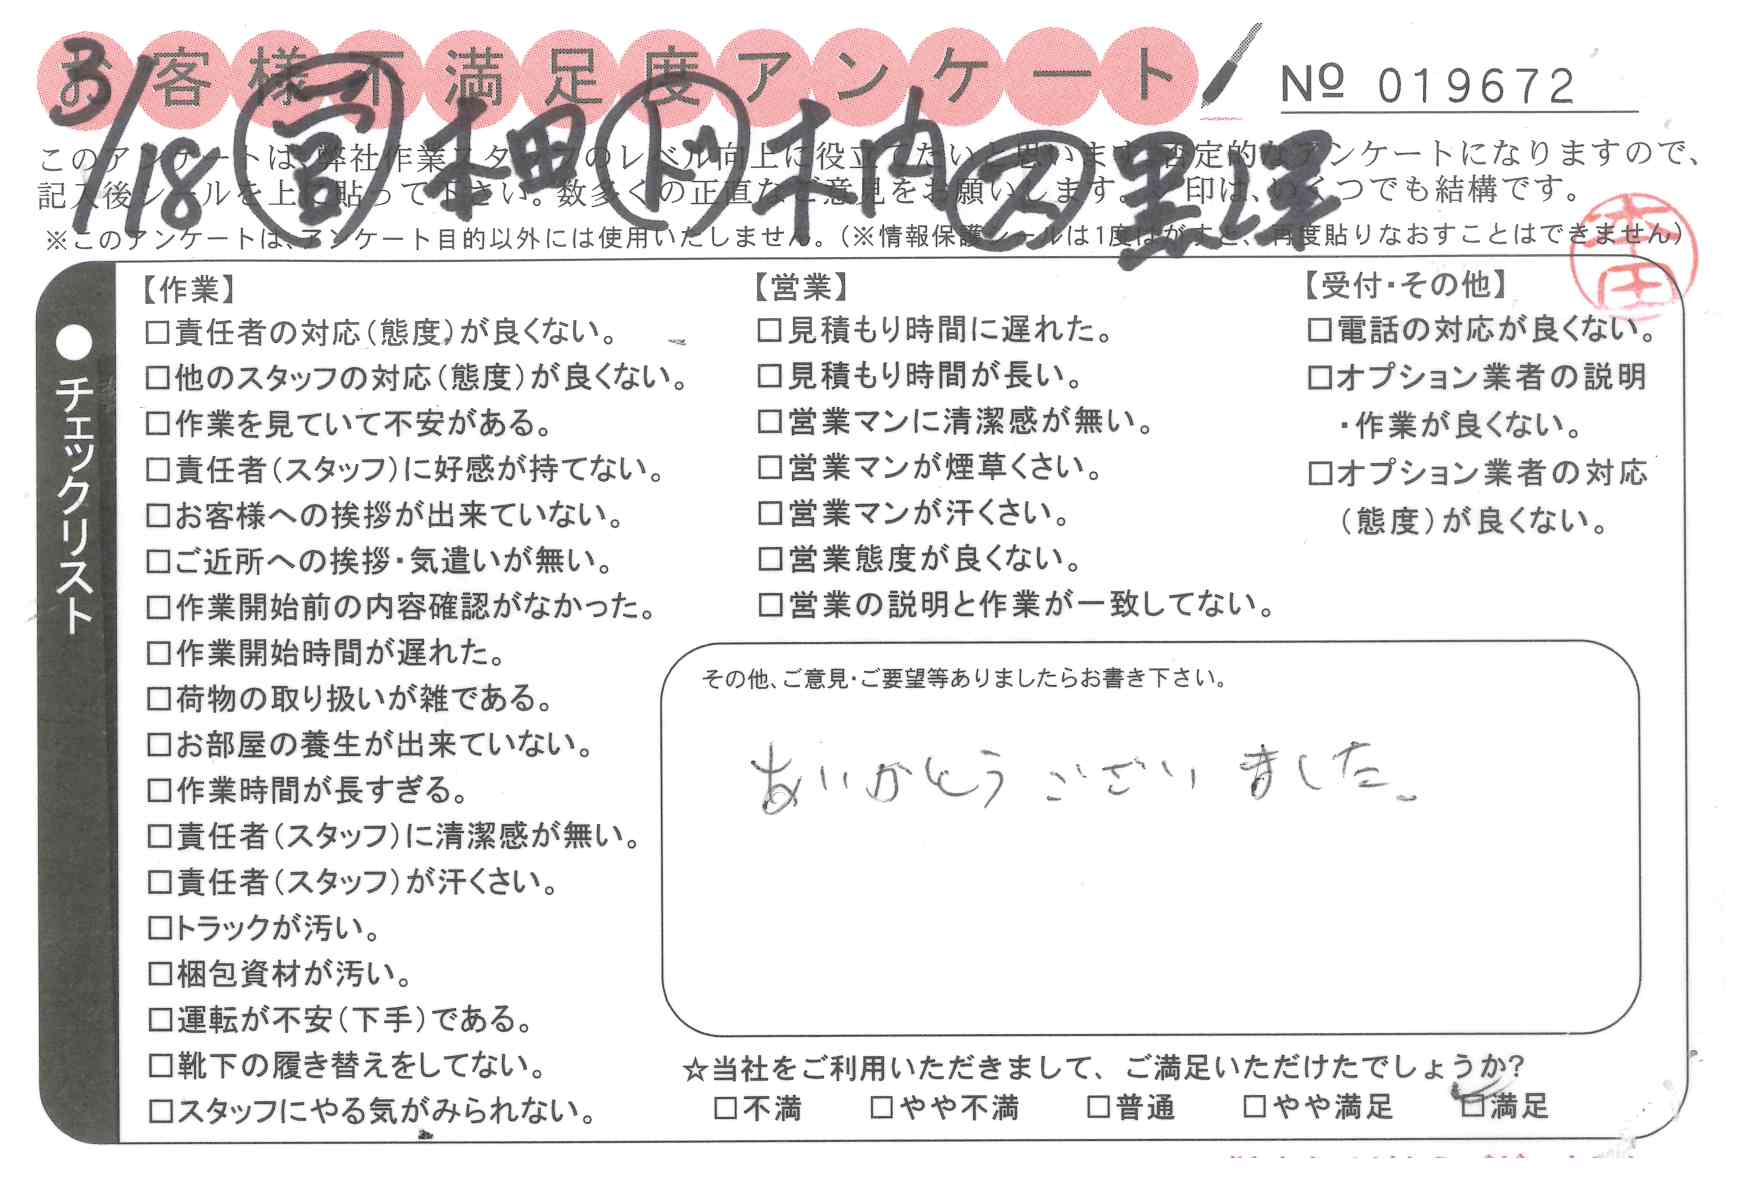 お客様不満足度アンケート
№ 019672
3/18 ㊢ 柚田 ㋣ 木内 ㋜ 黒澤
このアンケートは、弊社作業スタッフのレベル向上に役立てたいと思います。否定的なアンケートになりますので、
記入後シールを上に貼って下さい。数多くの正直なご意見をお願いします。
印は、いくつでも結構です。
※このアンケートは、アンケート目的以外には使用いたしません。(※情報保護シールは1度はがすと、再度貼りなおすことはできません)
本田
●チェックリスト
【作業】
□責任者の対応(態度)が良くない。
□他のスタッフの対応(態度)が良くない。
□作業を見ていて不安がある。
□責任者(スタッフ)に好感が持てない。
□お客様への挨拶が出来ていない。
□ご近所への挨拶・気遣いが無い。
□作業開始前の内容確認がなかった。
□作業開始時間が遅れた。
□荷物の取り扱いが雑である。
□お部屋の養生が出来ていない。
□作業時間が長すぎる。
□責任者(スタッフ)に清潔感が無い。
□責任者(スタッフ)が汗くさい。
□トラックが汚い。
□梱包資材が汚い。
□運転が不安(下手)である。
□靴下の履き替えをしてない。
□スタッフにやる気がみられない。
【営業】
□見積もり時間に遅れた。
□見積もり時間が長い。
□営業マンに清潔感が無い。
□営業マンが煙草くさい。
□営業マンが汗くさい。
□営業態度が良くない。
□営業の説明と作業が一致してない。
【受付・その他】
□電話の対応が良くない。
□オプション業者の説明
・作業が良くない。
□オプション業者の対応
(態度)が良くない。
その他、ご意見・ご要望等ありましたらお書き下さい。
ありがとうございました。
☆当社をご利用いただきまして、ご満足いただけたでしょうか?
□不満 □やや不満 □普通 □やや満足 □満足